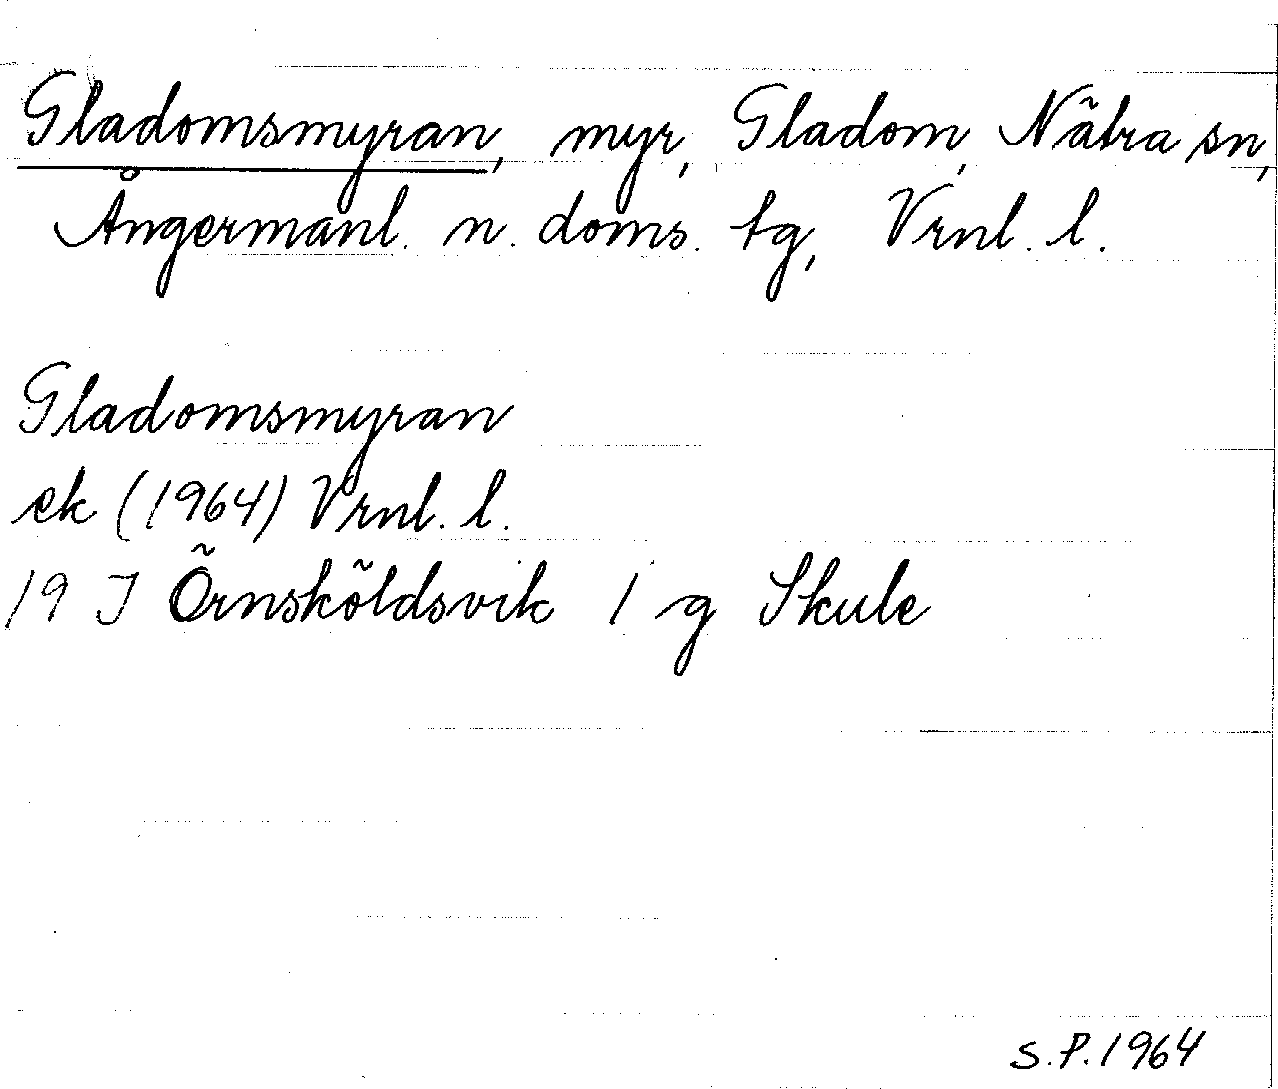 Gladomsmyran, myr, Gladom, Nätra sn,
Ångermanl. n. doms. tg, Vrnl. l.
Gladomsmyran
ek (1964) Vrnl. l.
19 J Örnsköldsvik 1 g Skule
S.P. 1964